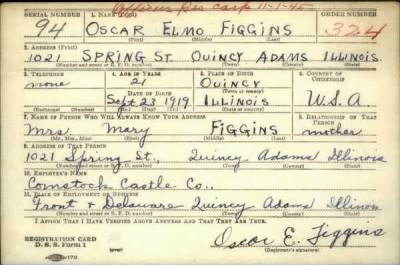 SERIAL NUMBER 1. NAME (Print) ORDER NUMBER
94 OSCAR ELMO FIGGINS 324
(First) (Middle) (Last)
2. ADDRESS (Print)
1021 SPRING ST. QUINCY ADAMS ILLINOIS
(Number and street or R. F. D. number) (Town) (County) (State)
3. TELEPHONE 4. AGE IN YEARS 5. PLACE OF BIRTH 6. COUNTRY OF CITIZENSHIP
none 21 QUINCY
DATE OF BIRTH (Town or county)
Sept 23 1919 ILLINOIS U.S.A.
(Exchange) (Number) (Mo.) (Day) (Yr.) (State or country)
7. NAME OF PERSON WHO WILL ALWAYS KNOW YOUR ADDRESS 8. RELATIONSHIP OF THAT PERSON
Mrs. Mary FIGGINS mother
(Mr., Mrs., Miss) (First) (Middle) (Last)
9. ADDRESS OF THAT PERSON
1021 Spring St., Quincy Adams Illinois
(Number and street or R. F. D. number) (Town) (County) (State)
10. EMPLOYER'S NAME
Comstock Castle Co.,
11. PLACE OF EMPLOYMENT OR BUSINESS
Front & Delaware Quincy Adams Illinois
(Number and street or R. F. D. number) (Town) (County) (State)
I AFFIRM THAT I HAVE VERIFIED ABOVE ANSWERS AND THAT THEY ARE TRUE.
REGISTRATION CARD
D. S. S. Form 1 Oscar E. Figgins
(Registrant's signature)